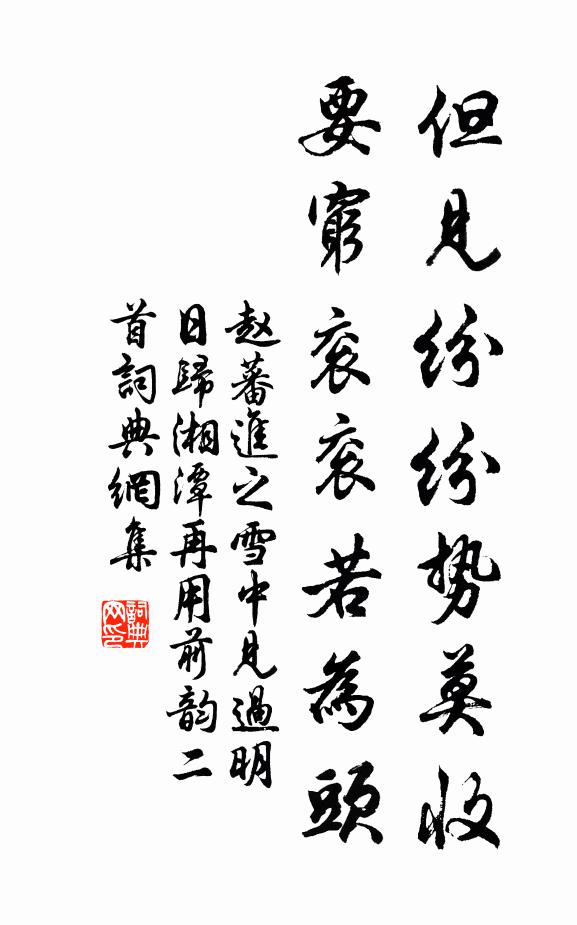 但見紛紛勢莫收
要窮衮衮若為頭
赵蕃進之雪中見過明
日歸湘潭再用前韵二
首詞典網集
詞典网印